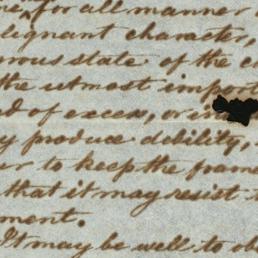 for all manner
lignant character,
rous state of the
the utmost import
d of excess, or in
y produce debility,
r to keep the frame
that it may resist
ment.
It may be well to ob